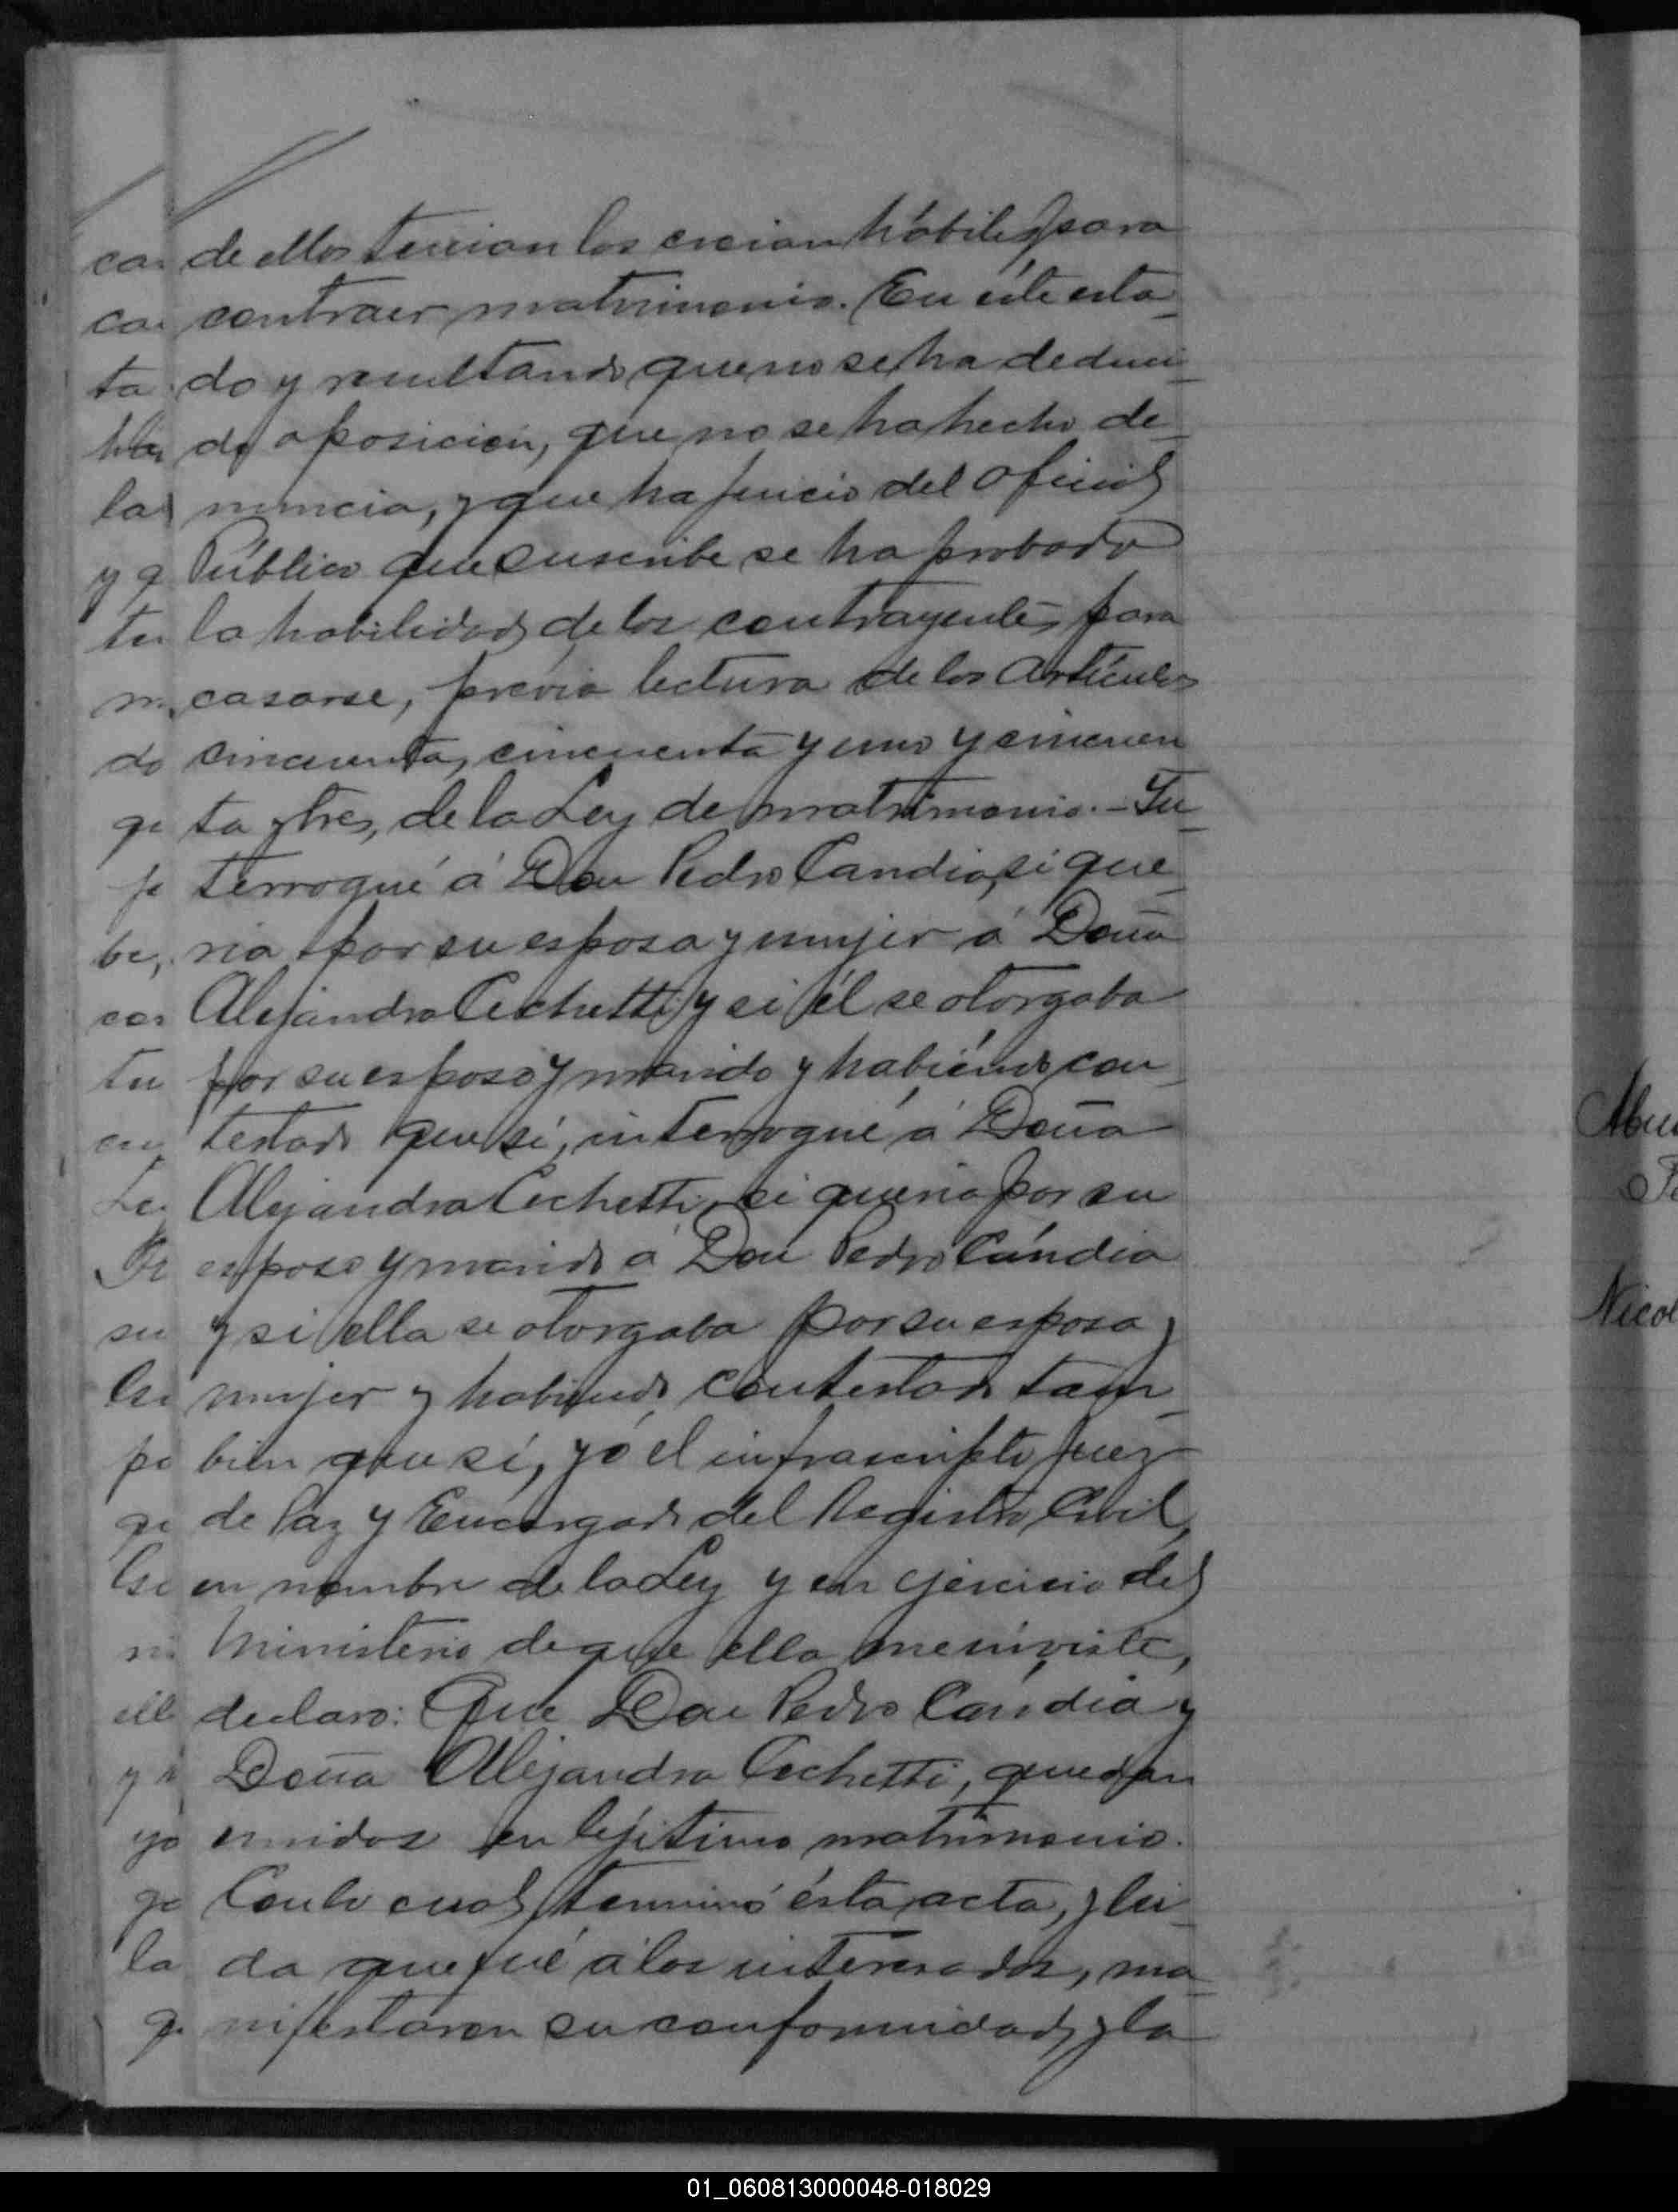 de ellos tenian los creian hábiles para
contraer matrimonio. En éste esta_
do y resultando que no se ha deduci_
do oposición, que no se ha hecho de_
nuncia, y que ha juicio del Oficial
Público que suscribe se ha probado
la habilidad de los contrayentes para
casarse, prévia lectura de los Articulos
cincuenta, cincuenta y uno y cincuen
ta y tres, de la Ley de matrimonio. - In_
terrogué á Don Pedro Candia, si que_
ria por su esposa y mujer á Doña
Alejandra Cechetti y si él se otorgaba
por su esposo y marido y habiéndo con_
testado que sí, interrogué á Doña
Alejandra Cechetti, si queria por su
esposo y marido á Don Pedro Cándia
y si ella se otorgaba por su esposa y
mujer y habiendo contestado tam_
bien que sí, yó el infrascripto Juez
de Paz y Encargado del Registro Civil,
en nombre de la Ley y en ejercicio del
Ministerio de que ella me inviste,
declaro: Que Don Pedro Cándia y
Doña Alejandra Cechetti, quedan
unidos en lejitimo matrimonio.
Con lo cual terminó ésta acta, y lei_
da que fué á los interesados, ma_
nifestaron su conformidad y la
01_060813000048-018029